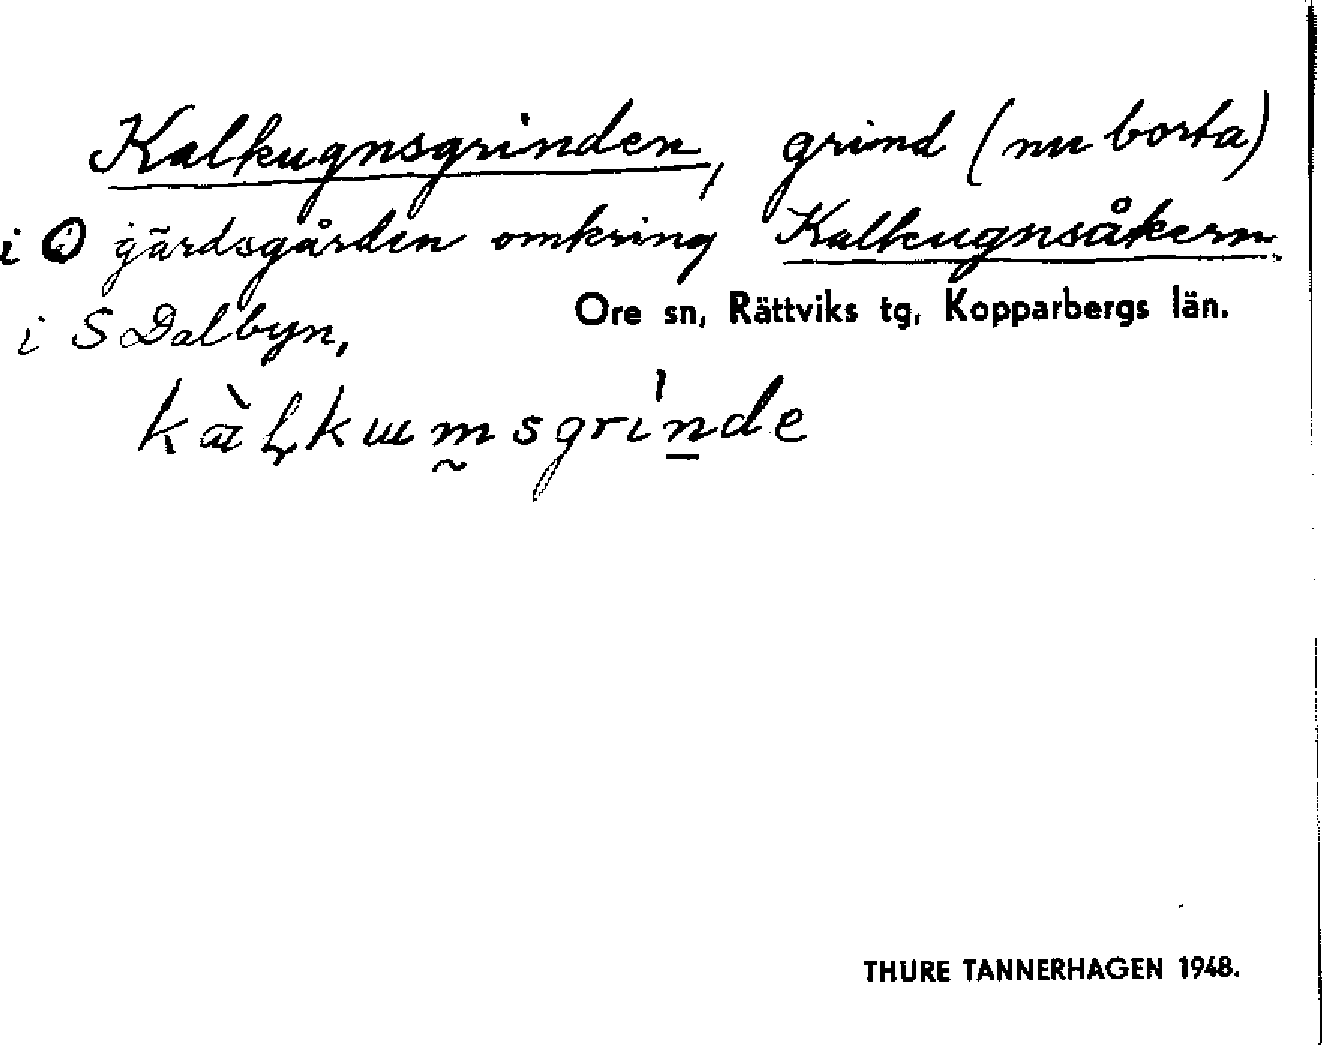 Kalkugnsgrinden, grind (nu borta)
i gärdsgården omkring Kalkugnsåkern
i S Dalbyn,
Ore sn, Rättviks tg, Kopparbergs län.
THURE TANNERHAGEN 1948.